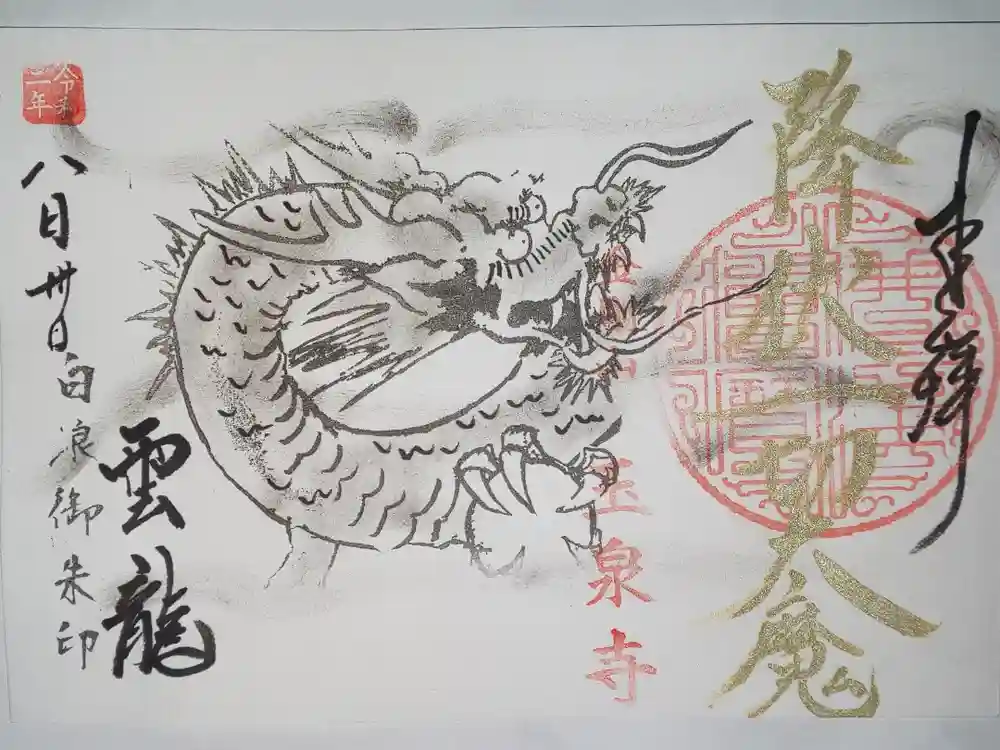 奉拝
降伏一切大魔
玉泉寺
雲龍
令和二年
八月卅日白浪御朱印